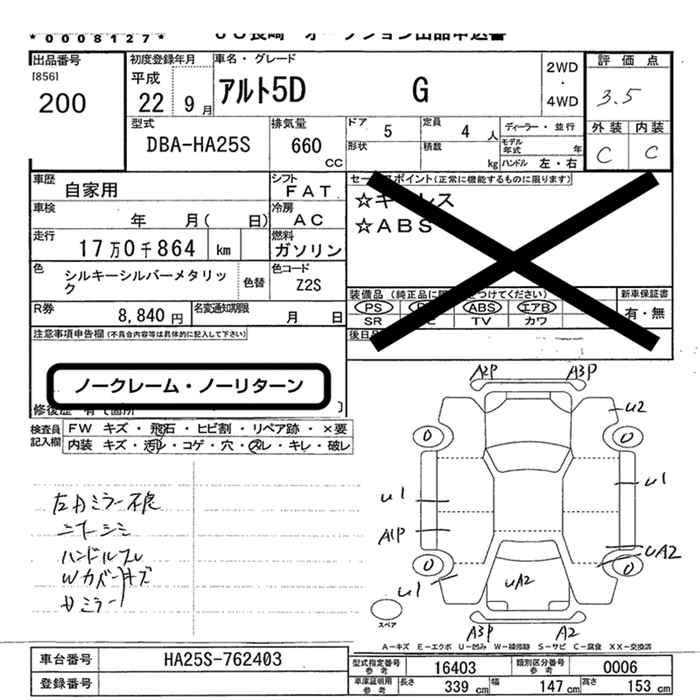 *0008127*
出品番号
[856]
200
初度登録年月
平成
22 9月
車名・グレード
アルト5D G
2WD
・
4WD
評価点
3.5
外装 内装
C C
型式
DBA-HA25S
排気量
660
CC
ドア 5
定員 4 人
形状
積数 kg
ディーラー・並行
モデル年式 年
ハンドル 左・右
車歴
自家用
シフト
FAT
車検
年 月( 日)
冷房
AC
走行
17万0千864 km
燃料
ガソリン
色
シルキーシルバーメタリック
色替
色コード
Z2S
R券
8,840円
名変通知期限
月 日
(正常に機能するものに限ります)
☆ABS
装備品
PS ABS エアB
SR TV カワ
新車保証書
有・無
注意事項申告欄(不具合内容等は具体的に記入して下さい)
ノークレーム・ノーリターン
検査員記入欄
FW キズ・飛石・ヒビ割・リペア跡・×要
内装 キズ・汚レ・コゲ・穴・スレ・キレ・破レ
左ドミラー不良
ニオーシミ
ハンドルスレ
Wカバーキズ
ミラー
A2P A3P
U2
U1
U1
A1P
UA2
U1
UA2
A3P A2
スペア
A-キズ E-エクボ U-凹み W-補修跡 S-サビ C-腐食 XX-交換済
車台番号 HA25S-762403
登録番号
型式指定番号 参考 16403
類別区分番号 参考 0006
車庫証明用 参考 長さ 339 cm 幅 147 cm 高さ 153 cm